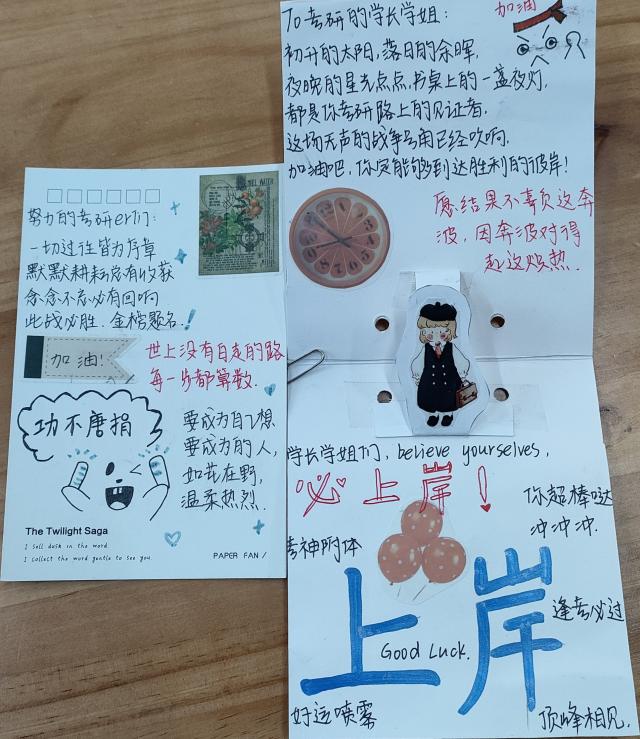 努力的考研er们：
一切过往皆为序章
默默耕耘总有收获
念念不忘必有回响
此战必胜．金榜题名．！
加油！
世上没有白走的路
每一步都算数．
功不唐捐
要成为自己想
要成为的人，
如花在野，
温柔热烈．
The Twilight Saga
I sell dusk in the word.
I collect the word gentle to see you.
PAPER FAN /
To 考研的学长学姐：
加油
初升的太阳，落日的余晖，
夜晚的星光点点，书桌上的一盏夜灯，
都是你考研路上的见证者．
这场无声的战争号角已经吹响．
加油吧，你定能够到达胜利的彼岸！
愿结果不辜负这奔
波，因奔波对得
起这炽热．
学长学姐们，believe yourselves，
必上岸！
你超棒哒
冲冲冲．
考神附体
上岸
逢考必过
Good Luck．
好运喷雾
顶峰相见．